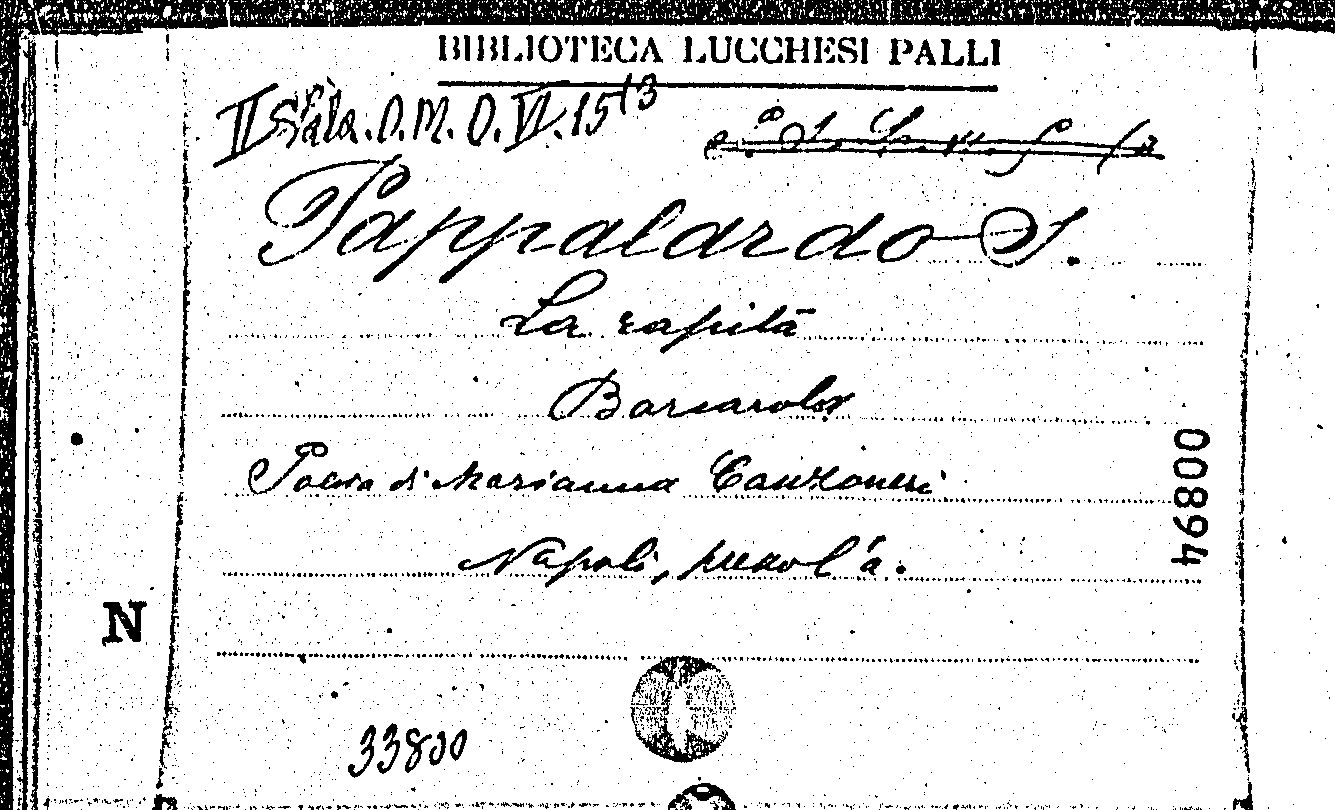 BIBLIOTECA LUCCHESI PALLI
II Sala. O. M. O. VI. 15 13
Pappalardo S.
La rapita
Barcarola
Poesia di Marianna Canzoneri
Napoli, presso l'a.
00894
N
33800